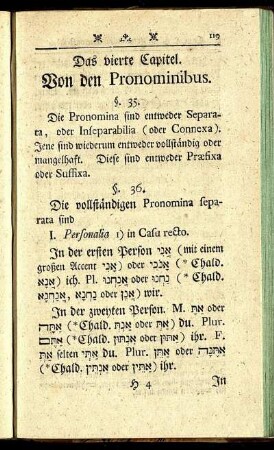 119
Das vierte Capitel.
Von den Pronominibus.
§. 35.
Die Pronomina sind entweder Separa-
ta, oder Inseparabilia (oder Connexa).
Jene sind wiederum entweder vollständig oder
mangelhaft. Diese sind entweder Præfixa
oder Suffixa.
§. 36.
Die vollständigen Pronomina sepa-
rata sind
I. Personalia 1) in Casu recto.
In der ersten Person אֲנִי (mit einem
großen Accent אָנִי) oder אָנֹכִי (*Chald.
אֲנָא) ich. Pl. אֲנַחְנוּ oder נַחְנוּ (*Chald.
אֲנַחְנָא, נַחְנָא oder אֲנַן) wir.
In der zweyten Person. M. אַתְּ oder
אַתָּה (*Chald. אַנְתְּ oder אַתְּ) du. Plur.
אַתֶּם (*Chald. אַנְתּוּן oder אַתּוּן) ihr. F.
אַתְּ selten אַתִּי du. Plur. אַתֵּן oder אַתֵּנָה
(*Chald. אַנְתֵּין oder אַתֵּין) ihr.
H 4 In